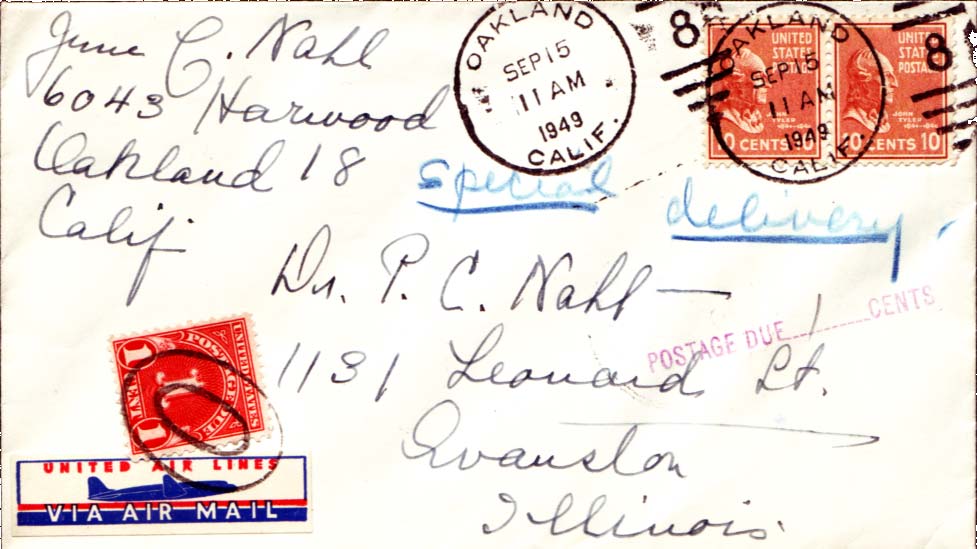 June C. Nahl
6043 Harwood
Oakland 18
Calif
OAKLAND
SEP 15
11 AM
1949
CALIF.
8
OAKLAND
SEP 15
11 AM
1949
CALIF.
8
UNITED
STATES
POSTAGE
JOHN
TYLER
10 CENTS 10
UNITED
STATES
POSTAGE
JOHN
TYLER
10 CENTS 10
Special delivery.
Dr. P. C. Nahl
1131 Leonard St.
Evanston
Illinois
POSTAGE DUE 1 CENTS
UNITED STATES
POSTAGE DUE
1 CENT 1
UNITED AIR LINES
VIA AIR MAIL